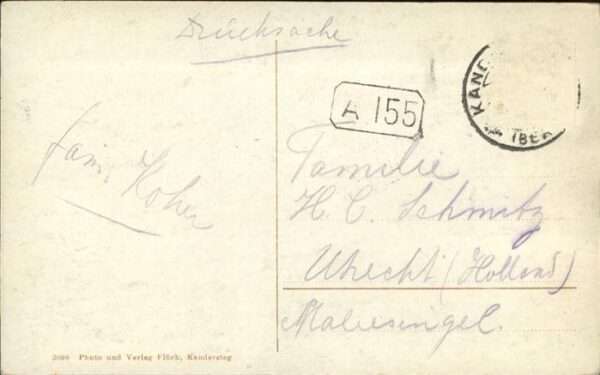 Drucksache
A 155
KAND
IBER
Familie
H. C. Schmitz
Utrecht (Holland)
Maliesingel.
Fam. Koher
Photo und Verlag Flück, Kandersteg